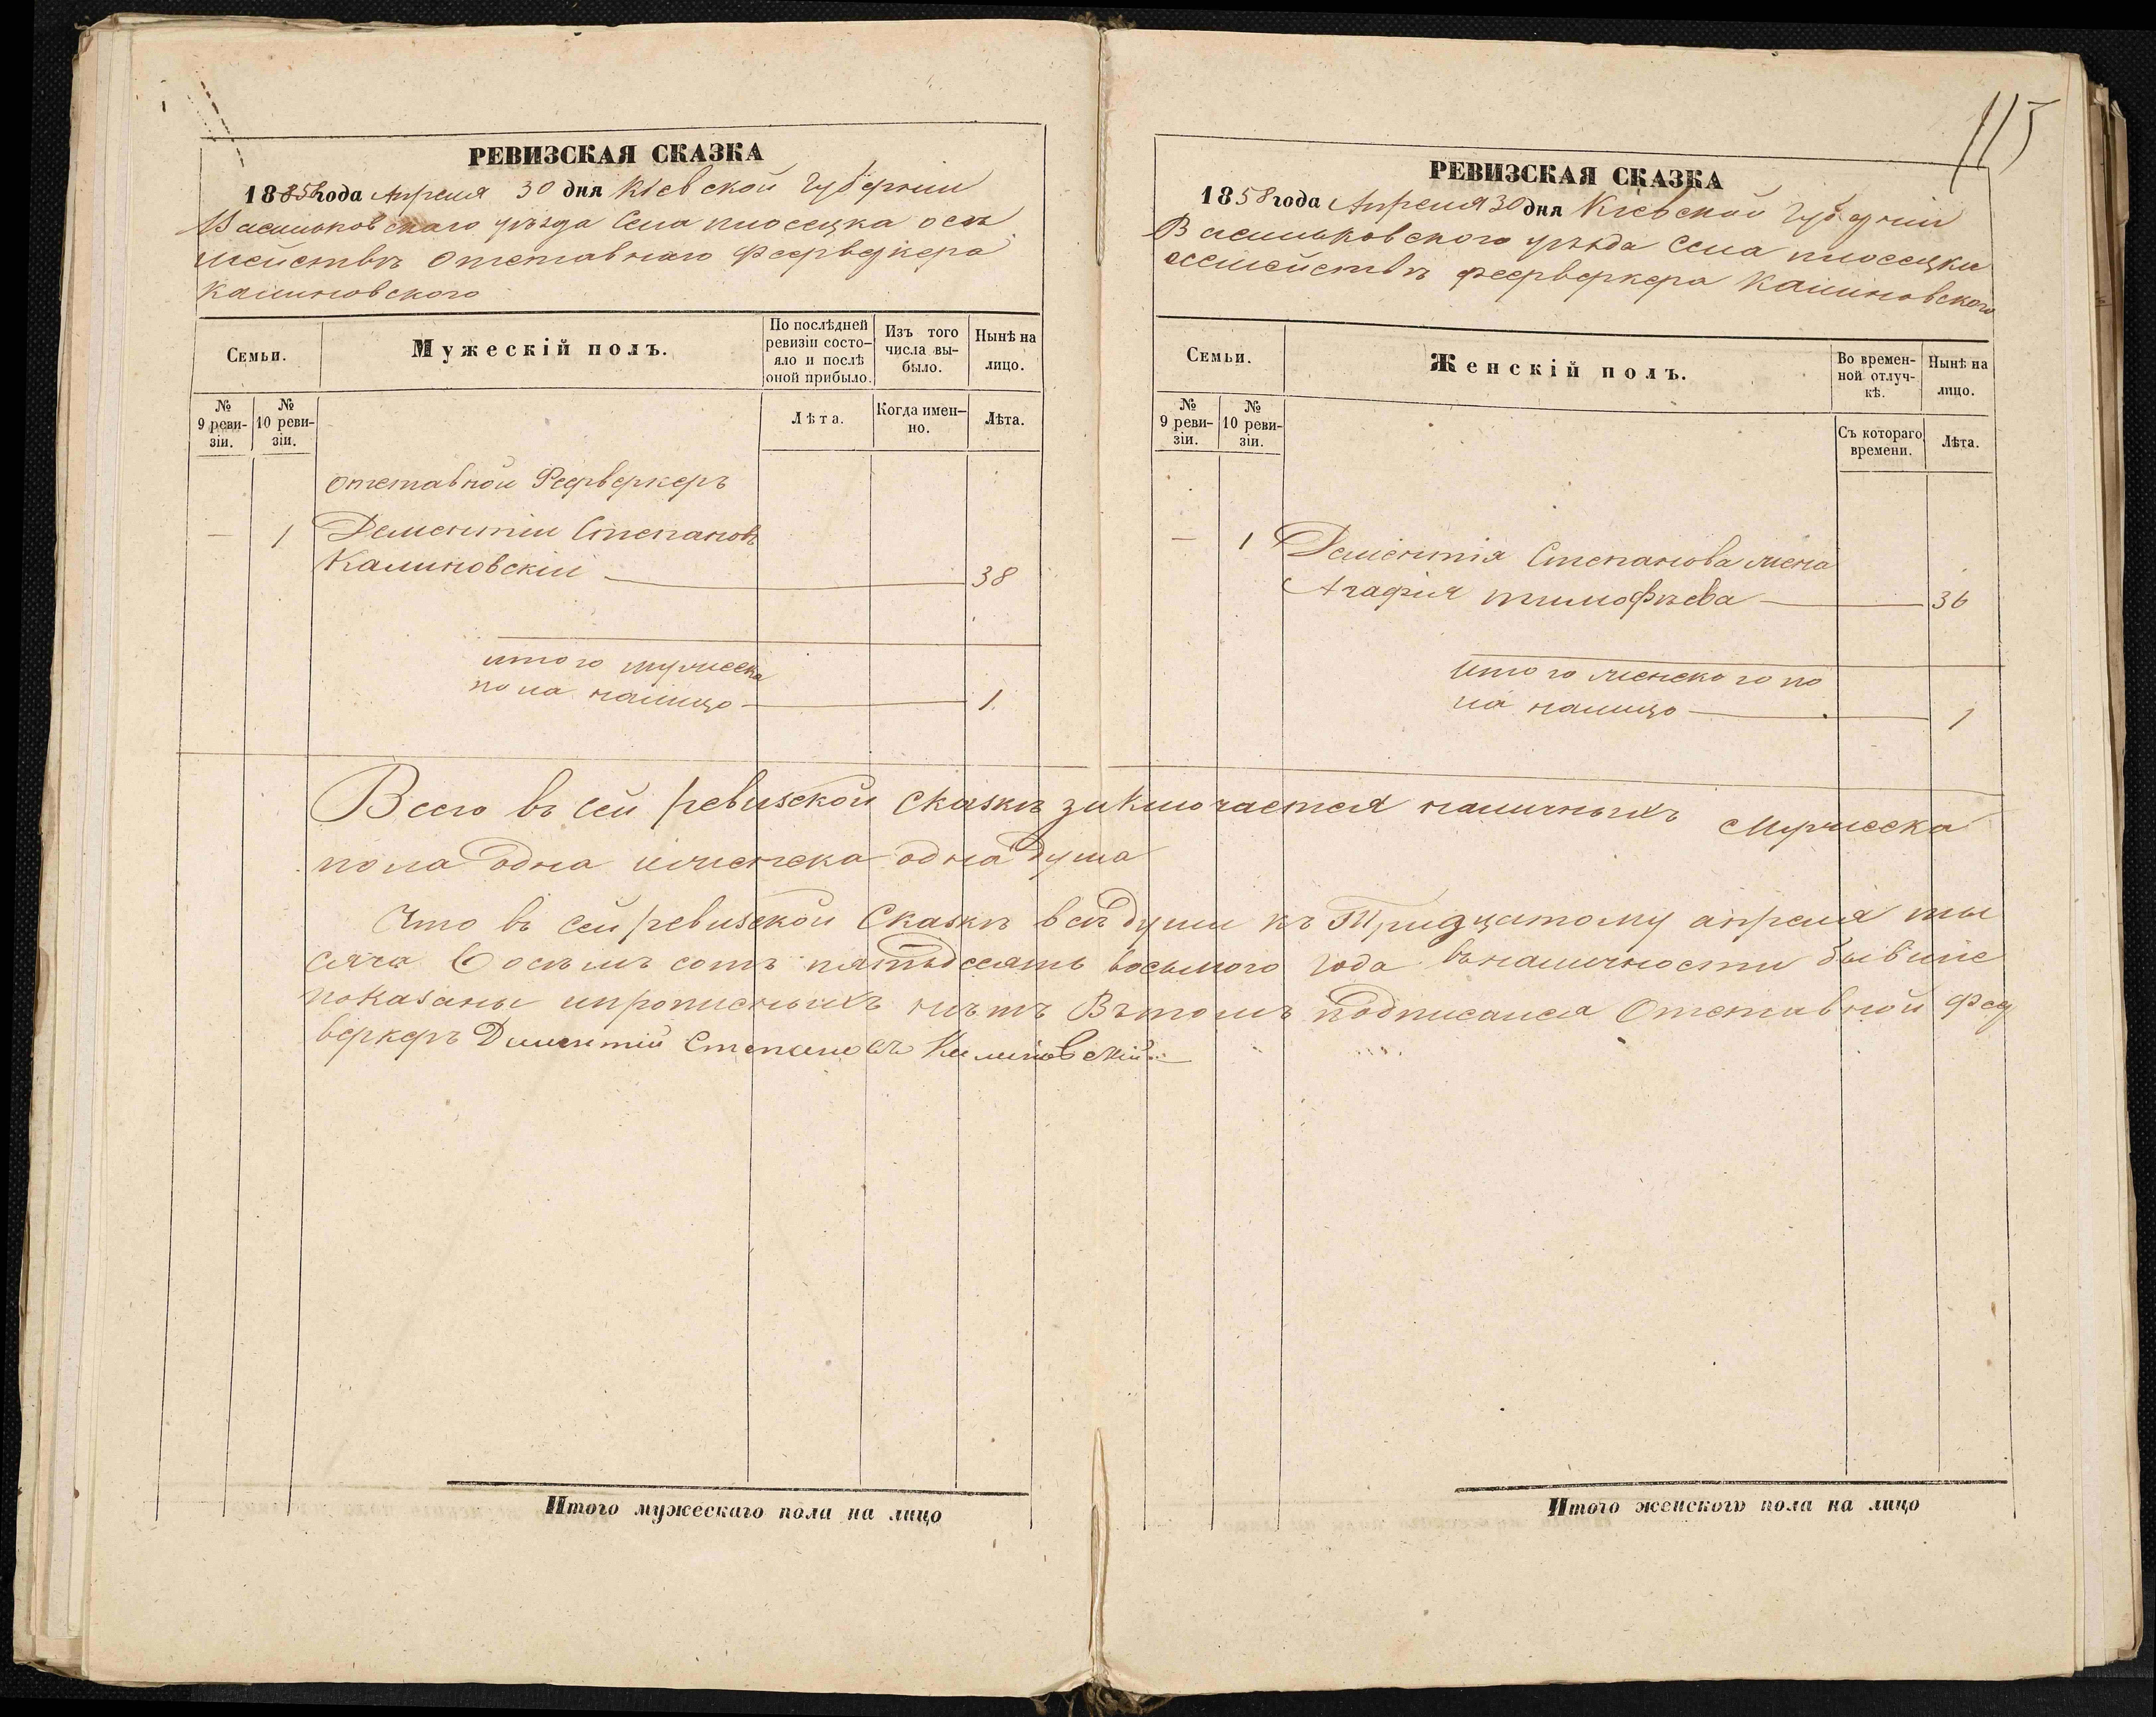 115
РЕВИЗСКАЯ СКАЗКА
1858 года Апреля 30 дня Кіевской Губерніи
Васильковскаго уѣзда Села плосецка осе
мействѣ Отставнаго Феерверкера
Калиновского
Семьи.
Мужескій полъ.
По послѣдней
ревизіи состо-
яло и послѣ
оной прибыло.
Изъ того
числа вы-
было.
Нынѣ на
лицо.
№
9 реви-
зіи.
№
10 реви-
зіи.
Лѣта.
Когда имен-
но.
Лѣта.
отставной Феерверкеръ
— 1 Дементіи Степановъ
Калиновскіи 38
итого мужеска
пола налицо 1
РЕВИЗСКАЯ СКАЗКА
1858 года Апреля 30 дня Кіевской Губерніи
Васильковского уѣзда Села плосецки
осемействѣ феерверкера Калиновского
Семьи.
Женскій полъ.
Во времен-
ной отлуч-
кѣ.
Нынѣ на
лицо.
№
9 реви-
зіи.
№
10 реви-
зіи.
Съ котораго
времени.
Лѣта.
— 1 Дементія Степанова жена
Агафия тимофѣева 36
итого женского по
ла налицо 1
Всего въ сей ревизской сказкѣ заключается наличныхъ Мужеска
пола одна иженска одна душа
Что въ сей ревизской Сказкѣ всѣ души къ Тридцатому апреля ты
сяча Восѣмъ сотъ пятьдесятъ восьмого года въналичности бывшіе
показаны ипрописныхъ нѣтъ Вътомъ подписался Отставной Феер
веркеръ Диментій Степановъ Калиновскій
Итого мужескаго пола на лицо
Итого женского пола на лицо